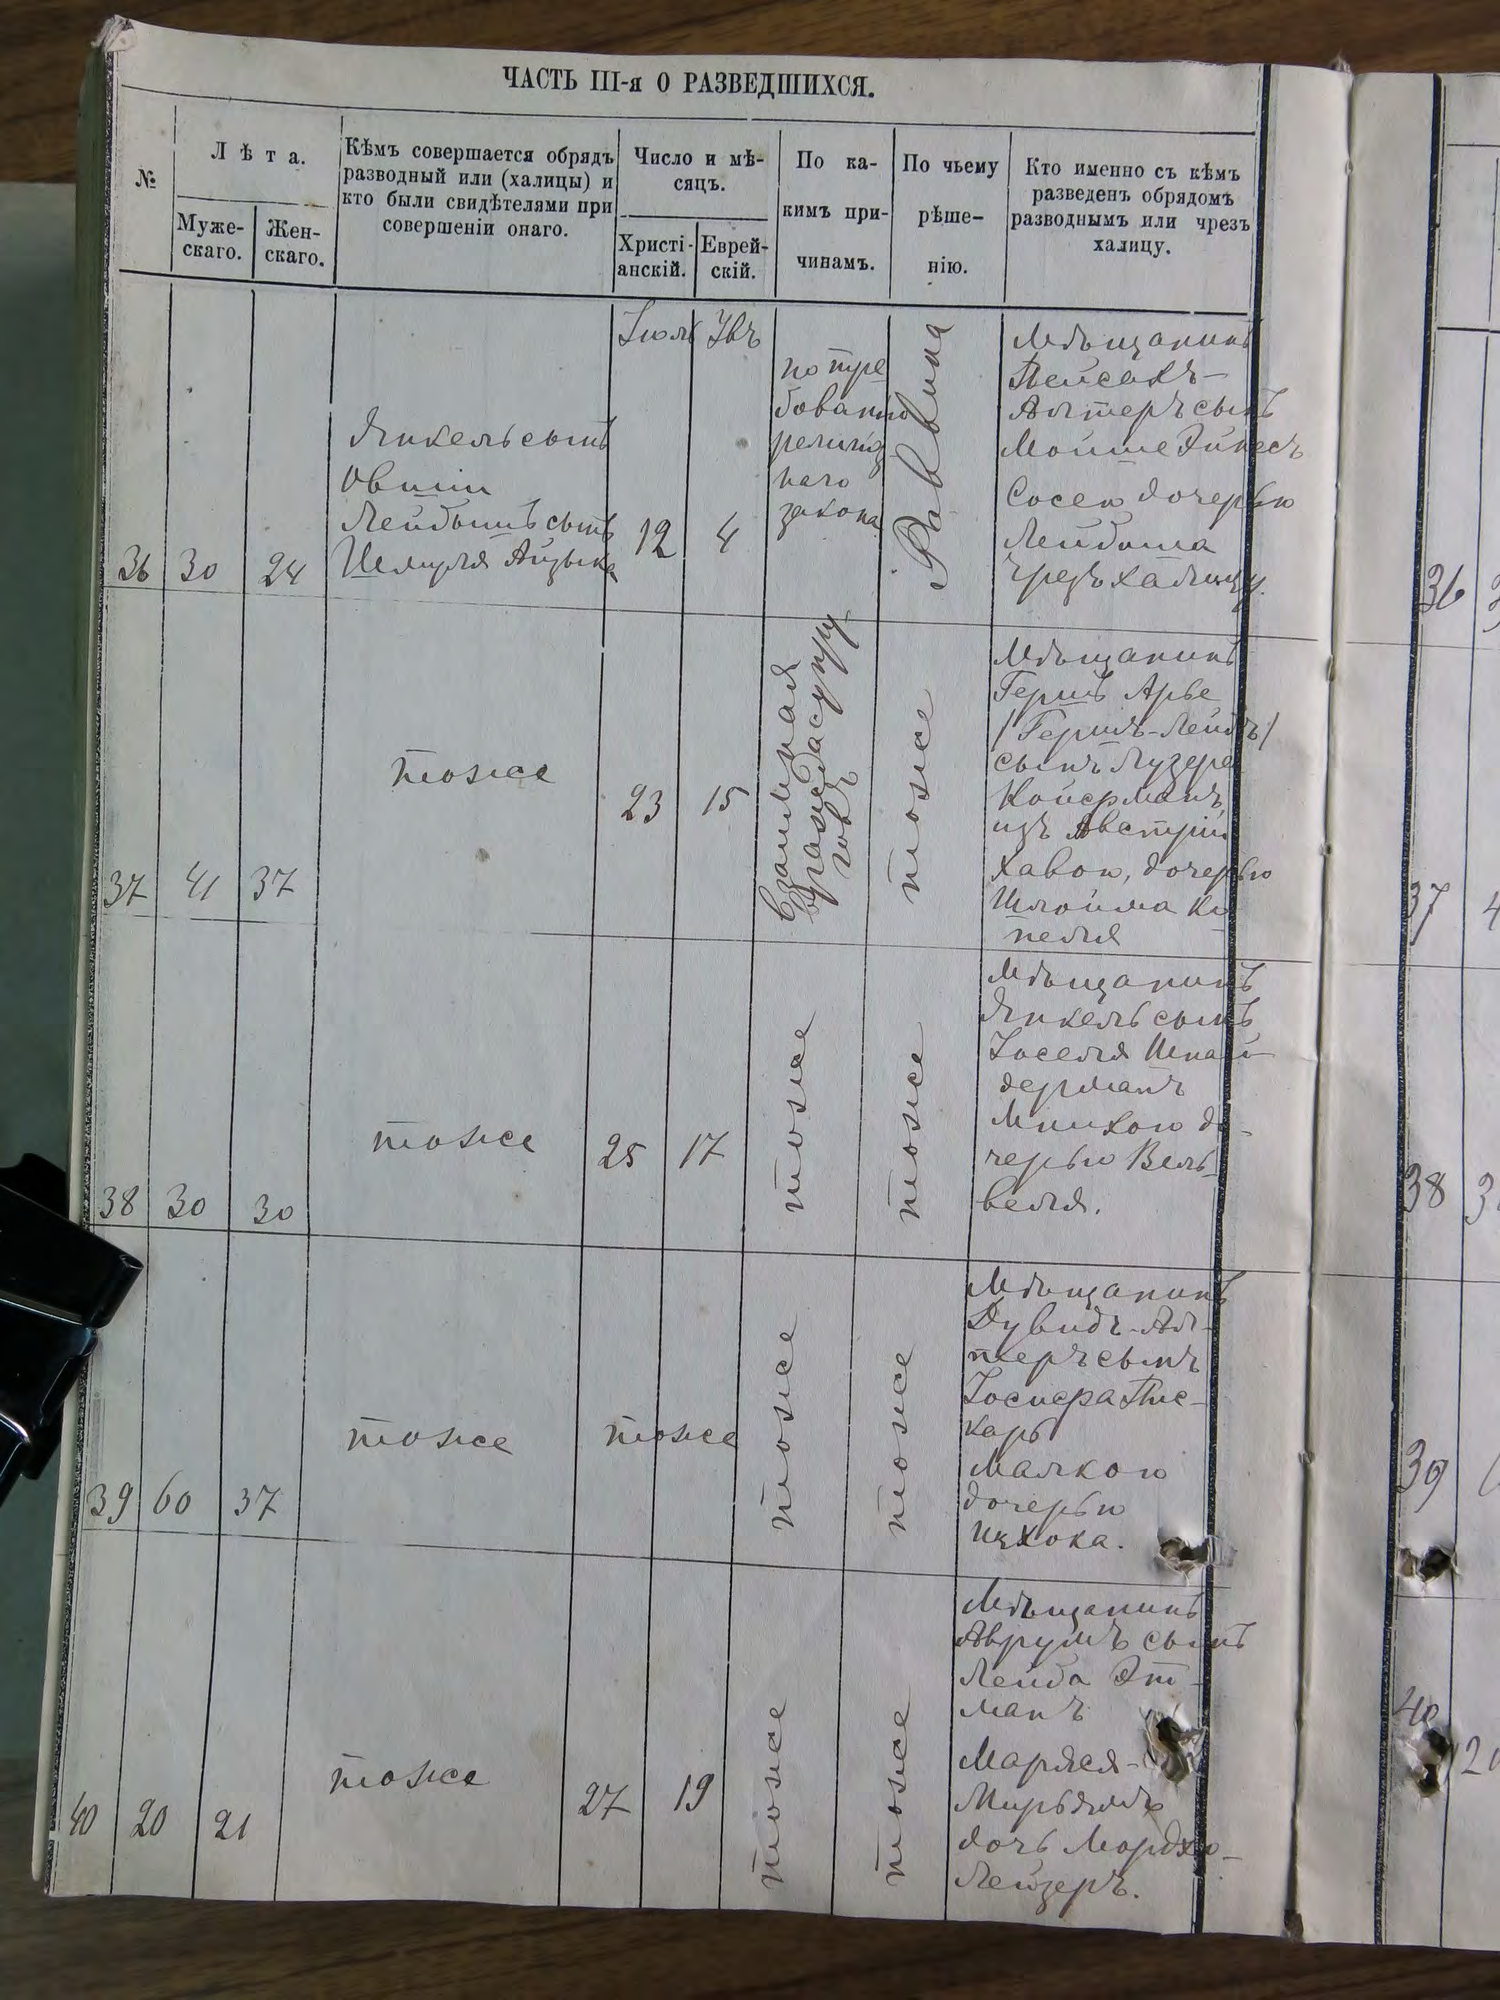 ЧАСТЬ III-я О РАЗВЕДШИХСЯ.
№
Лѣта.
Муже-
скаго.
Жен-
скаго.
Кѣмъ совершается обрядъ
разводный или (халицы) и
кто были свидѣтелями при
совершеніи онаго.
Число и мѣ-
сяцъ.
Христі-
анскій.
Еврей-
скій.
По ка-
кимъ при-
чинамъ.
По чьему
рѣше-
нію.
Кто именно съ кѣмъ
разведенъ обрядомъ
разводнымъ или чрезъ
халицу.
36
30
24
Янкель сынъ
Овшіи
Лейбышъ сынъ
Шмуля Айзыка
Іюль
12
Увъ
4
по тре
бованію
религіоз
наго
закона
Раввина
Мѣщанинъ
Пейсахъ-
Алтеръ сынъ
Мойше Эйнесъ
Сосею дочерью
Лейбыша
чрезъ халицу.
37
41
37
тоже
23
15
взаимная
вражда супру
говъ
тоже
Мѣщанинъ
Гершъ Арье
/Гершъ-Лейбъ/
сынъ Лузера
Койерманъ
изъ Австріи
Хавою, дочерью
Шлойма Ко
пеля
38
30
30
тоже
25
17
тоже
тоже
Мѣщанинъ
Янкель сынъ
Іоселя Шнай-
дерманъ
Минхою до-
черью Вель-
веля.
39
60
37
тоже
тоже
тоже
тоже
Мѣщанинъ
Дувидъ-Ал-
теръ сынъ
Іосифа Пис-
карь
Малкою
дочерью
Ицхока.
40
20
21
тоже
27
19
тоже
тоже
Мѣщанинъ
Аврумъ сынъ
Лейба Эт-
манъ
Маряся-
Мирьямъ
дочь Мордхо-
Лейзеръ.
36
37
4
38
3
39
40
20